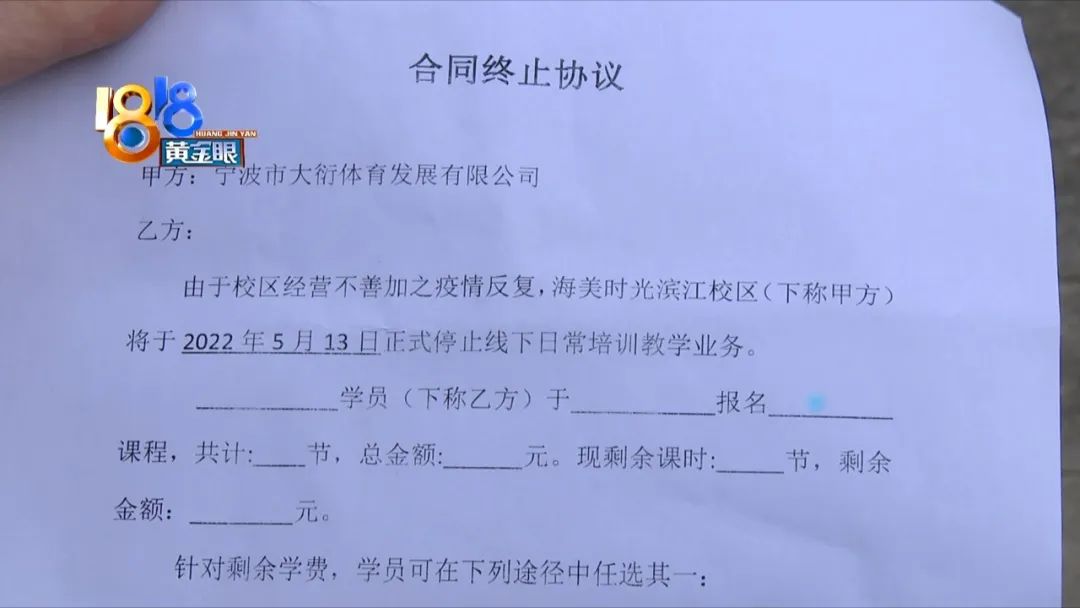 合同终止协议
1818
HUANG JIN YAN
黄金眼
甲方：宁波市大衍体育发展有限公司
乙方：
由于校区经营不善加之疫情反复，海美时光滨江校区（下称甲方）
将于 2022 年 5 月 13 日正式停止线下日常培训教学业务。
____________学员（下称乙方）于____________报名__________
课程，共计:____节，总金额:______元。现剩余课时:_____节，剩余
金额：________元。
针对剩余学费，学员可在下列途径中任选其一：